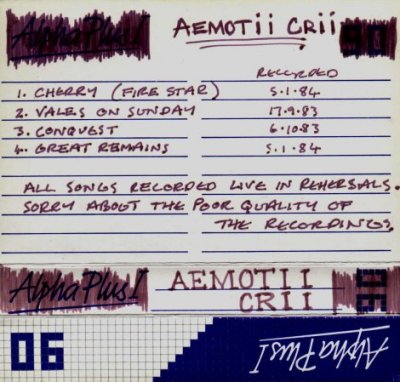 Alpha Plus I AEMOTii CRii 90
RECORDED
1. CHERRY (FIRE STAR) 5.1.84
2. VALES ON SUNDAY 17.9.83
3. CONQUEST 6.10.83
4. GREAT REMAINS 5.1.84
ALL SONGS RECORDED LIVE IN REHERSALS.
SORRY ABOUT THE POOR QUALITY OF
THE RECORDINGS.
Alpha Plus I AEMOTII 90
CRII
90 Alpha Plus I